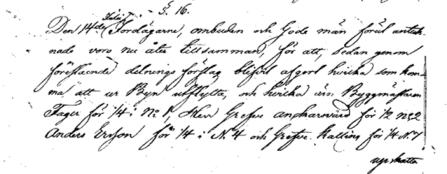 §. 16.
Julii
Den 14de Jordägarne, ombuden och Gode män förut anteck-
nade voro nu åter tillsamman, för att, sedan genom
föreståendе delnings förslag blifvit afgort hvilka som kom-
ma, att ur Byn utflytta, och hvilka äro: Byggmästaren
Fager för 1/4 i No 1, Herr Grefve Anckarsvärd för 1/2 No 2
Anders Ersson för 1/4 i N. 4 och Grefve Kalling för 1/4 N. 1
uprätta